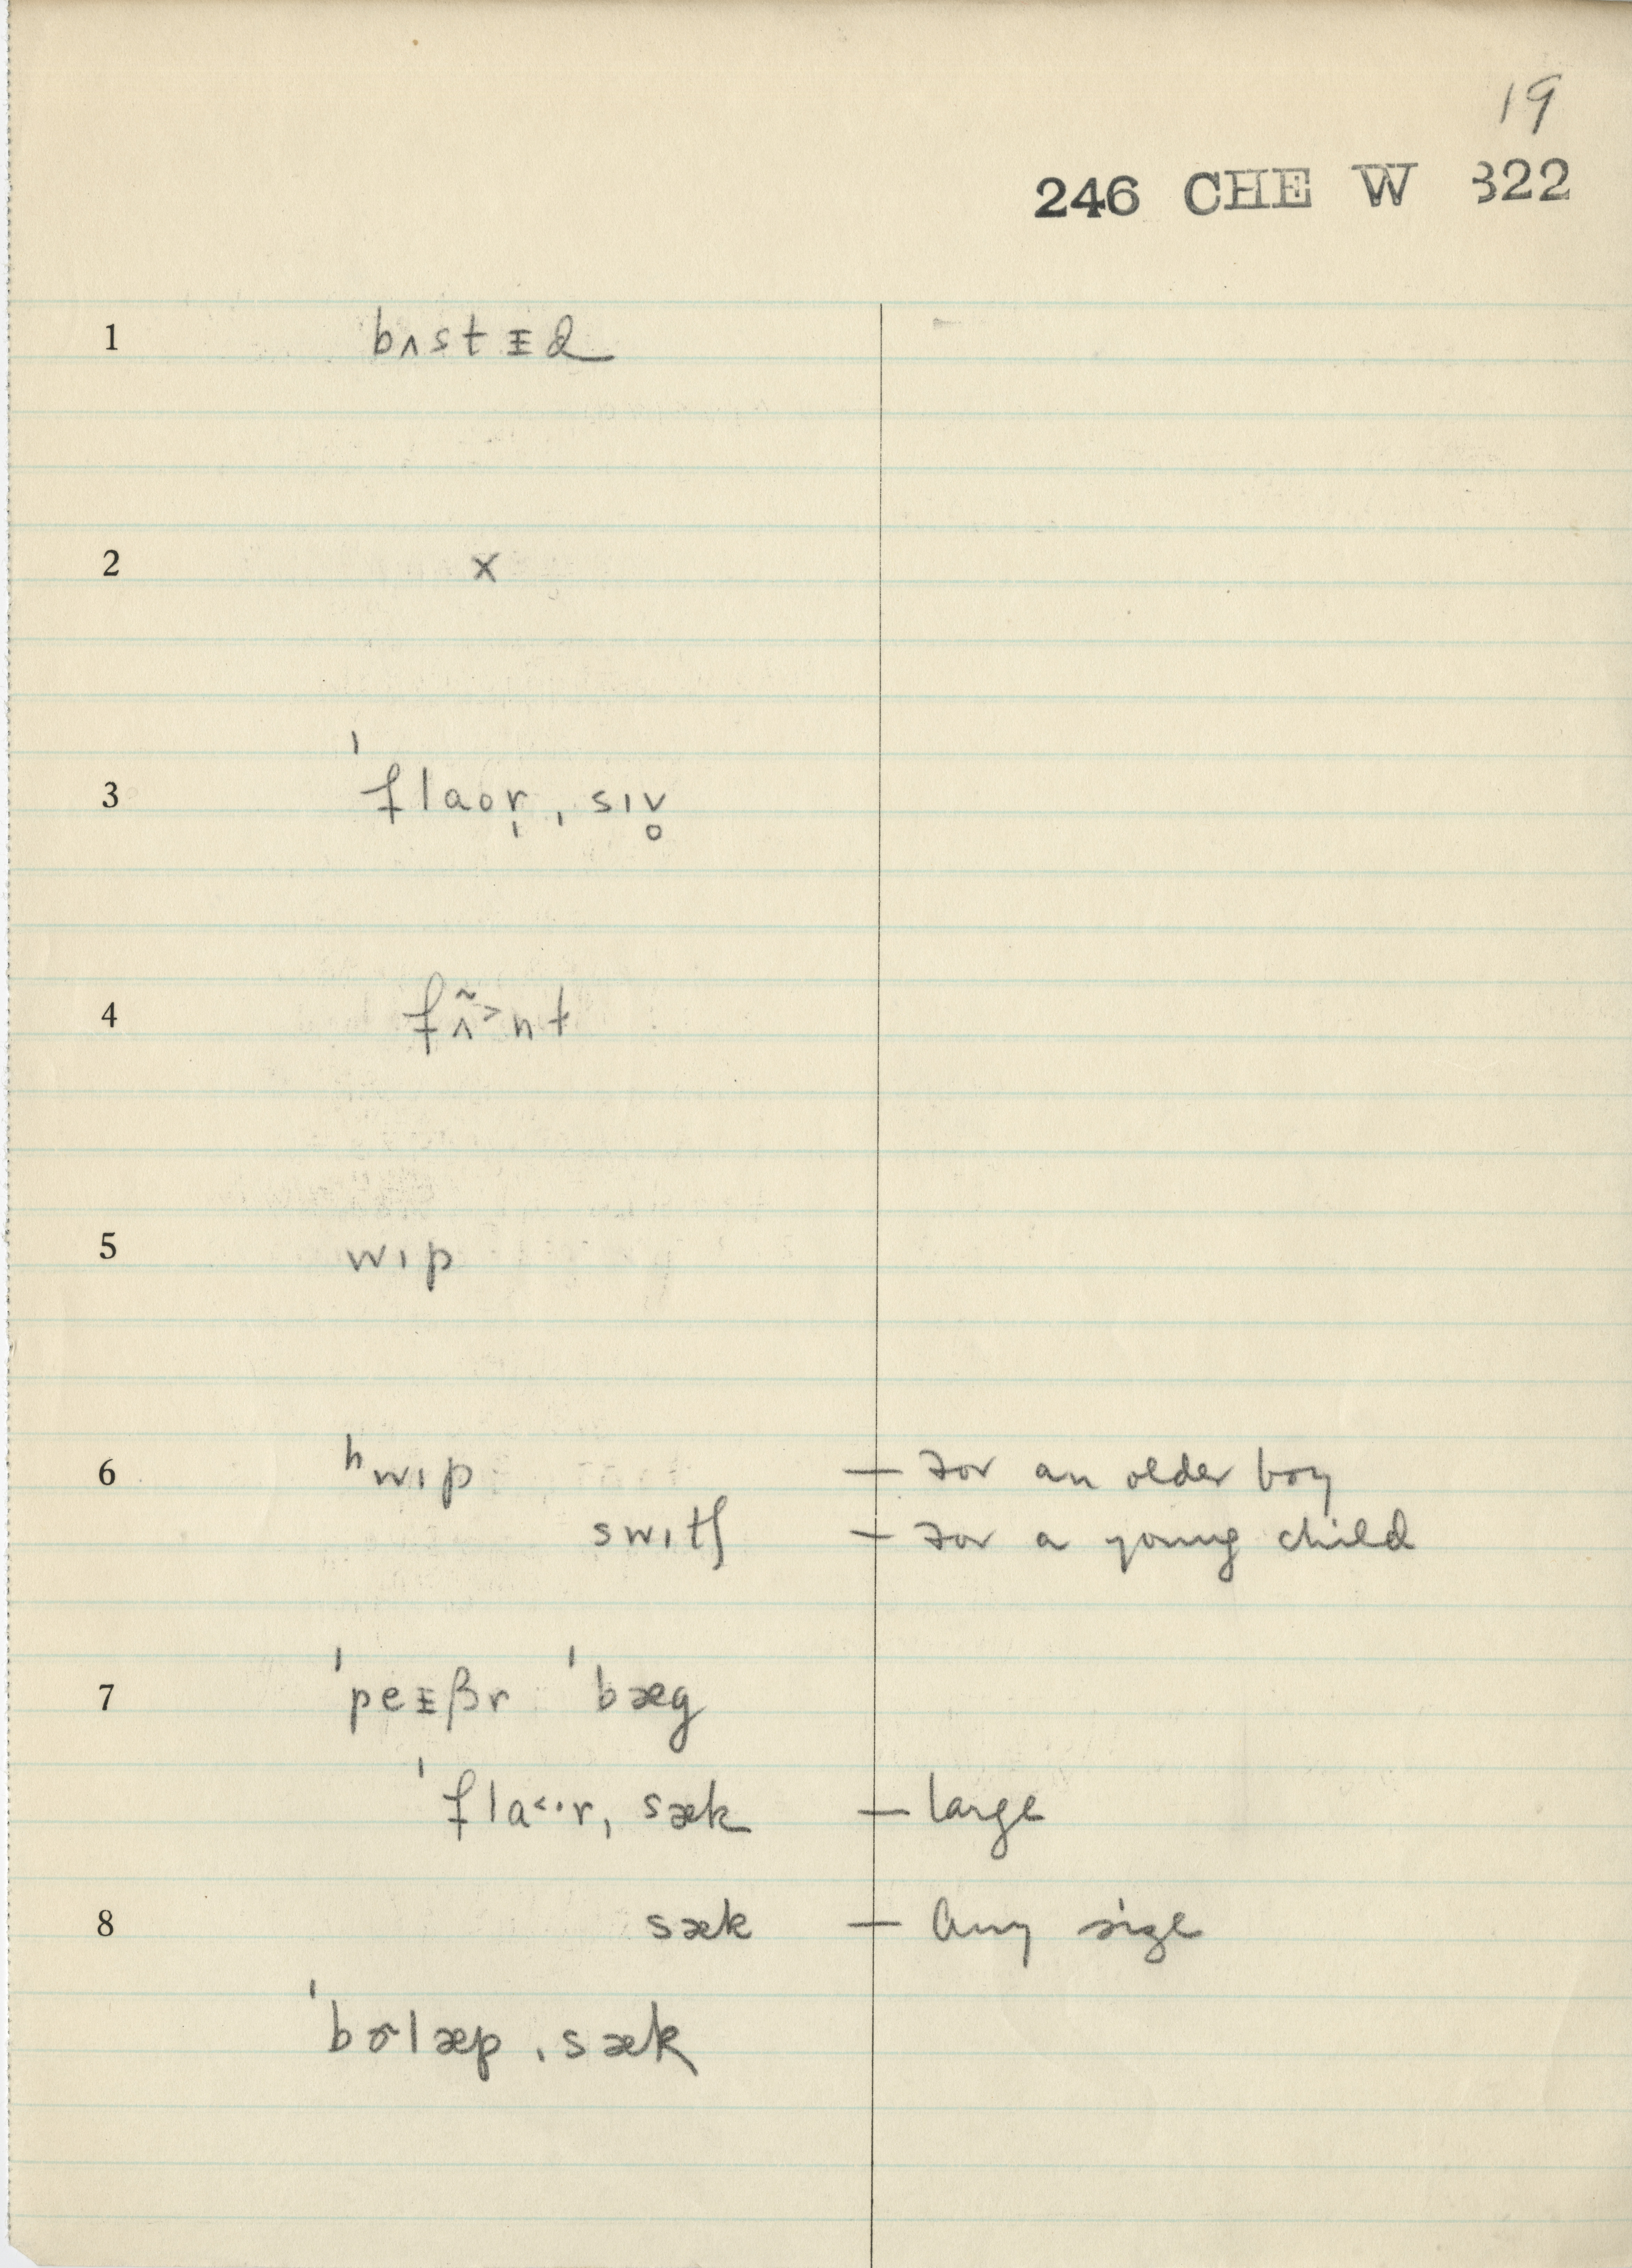 19
246 CHE W 322
1 bʌstᵻd
2 x
3 ˈflaor̩ ˌsɪv̥
4 fʌ̃˃nt
5 wɪp
6 ʰwɪp — for an older boy
swɪtʃ — for a young child
7 ˈpeᵻβr ˈbæg
ˈfla˂·r ˌsæk — large
8 sæk — any size
ˈbɚlæp ˌsæk